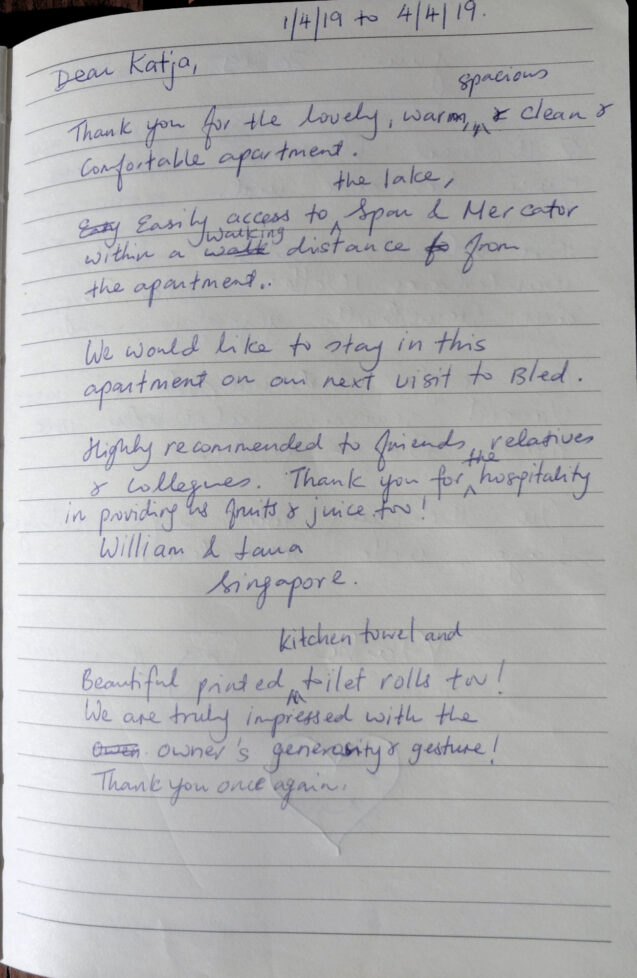 1/4/19 to 4/4/19.
Dear Katja,
spacious
Thank you for the lovely, warm, & clean &
Comfortable apartment.
the lake,
Easy Easily access to Spar & Mercator
walking
within a walk distance to from
the apartment..
We would like to stay in this
apartment on our next visit to Bled.
Highly recommended to friends, relatives
the
& collegues. Thank you for hospitality
in providing us fruits & juice too!
William & Jana
Singapore.
kitchen towel and
Beautiful printed toilet rolls too!
We are truly impressed with the
Owen owner's generosity & gesture!
Thank you once again.